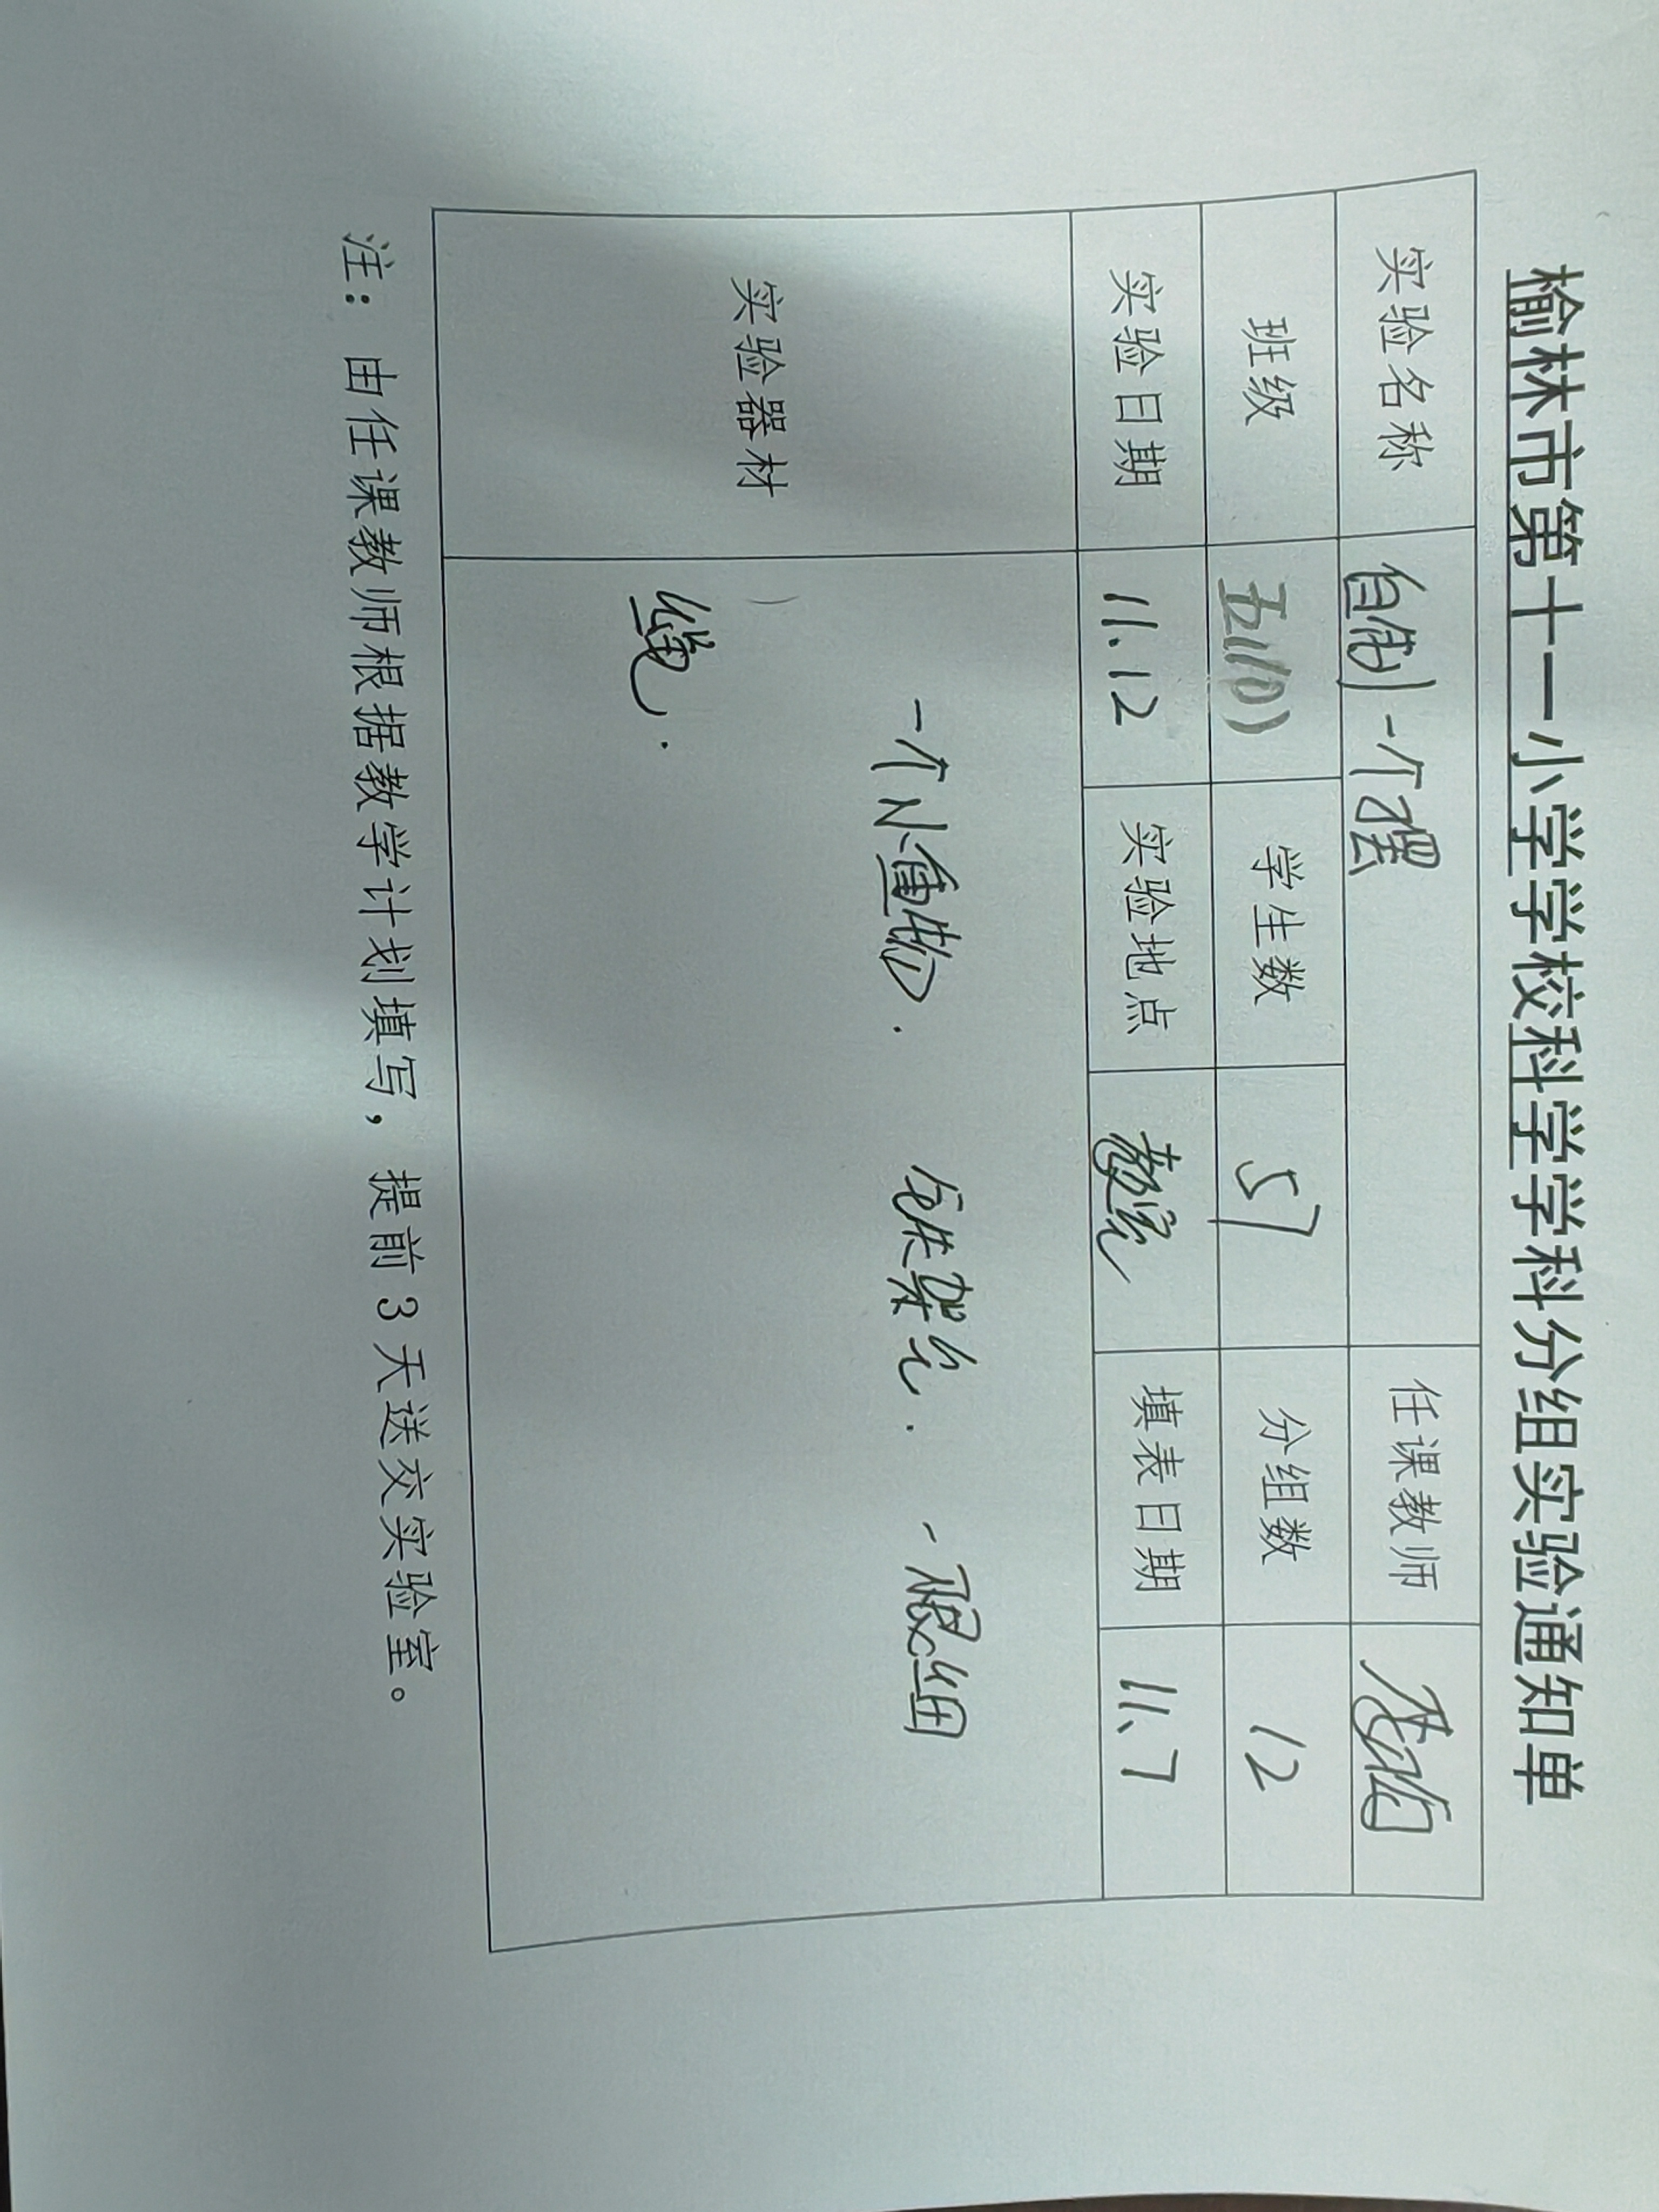 榆林市第十一小学学校科学学科分组实验通知单
实验名称 自制一个摆 任课教师
班级 五(10) 学生数 51 分组数 12
实验日期 11.12 实验地点 教室 填表日期 11.7
实验器材 一个小重物. 铁架台. 一根细
绳.
注：由任课教师根据教学计划填写，提前3天送交实验室。